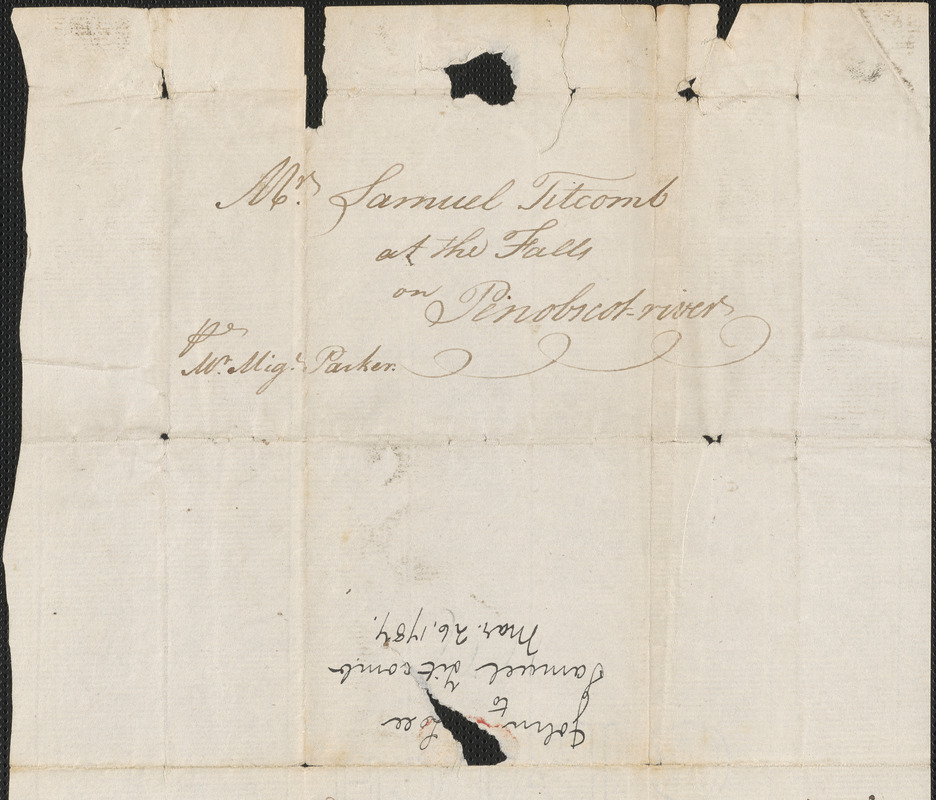 Mr. Samuel Titcomb
at the Falls
on Penobscot-river
Pr
Mr. Migl. Parker.
John Lee
to
Samuel Titcomb
Mar. 26, 1787.